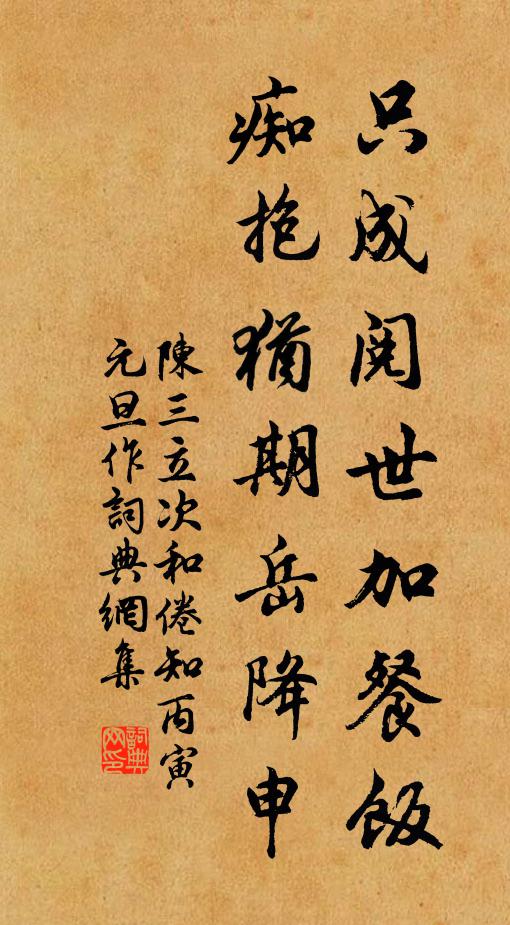 只成閱世加餐飯
痴抱猶期岳降申
陳三立次和倦知丙寅
元旦作詞典網集
詞典
网印